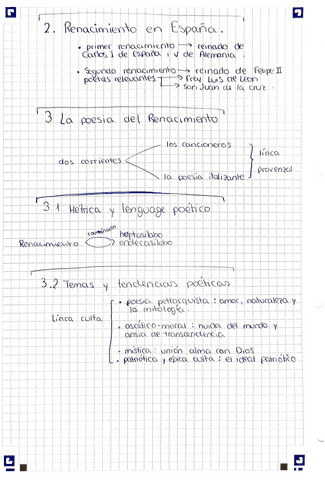 2. Renacimiento en España.
• primer renacimiento → reinado de
Carlos I de España y V de Alemania.
• Segundo renacimiento → reinado de Felipe II
poetas relevantes → Fray Luis de León
→ San Juan de la Cruz.
3 La poesía del Renacimiento
los cancioneros
dos corrientes
lírica
provenzal
la poesía italizante
3.1 Métrica y lenguage poético
combinado
Renacimiento heptasílabo
endecasílabo
3.2 Temas y tendencias poéticas
• poesía petrarquista : amor, naturaleza y
la mitología.
Lírica culta
• ascético-moral : huida del mundo y
ansia de transcendencia.
• mística : unión alma con Dios
• patriótica y épica culta : el ideal patriótico